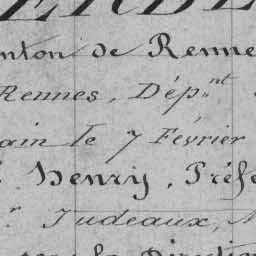 nton de Renne
Rennes, Dép.nt
ain le 7 Février
Henry, Préfe
Judeaux,